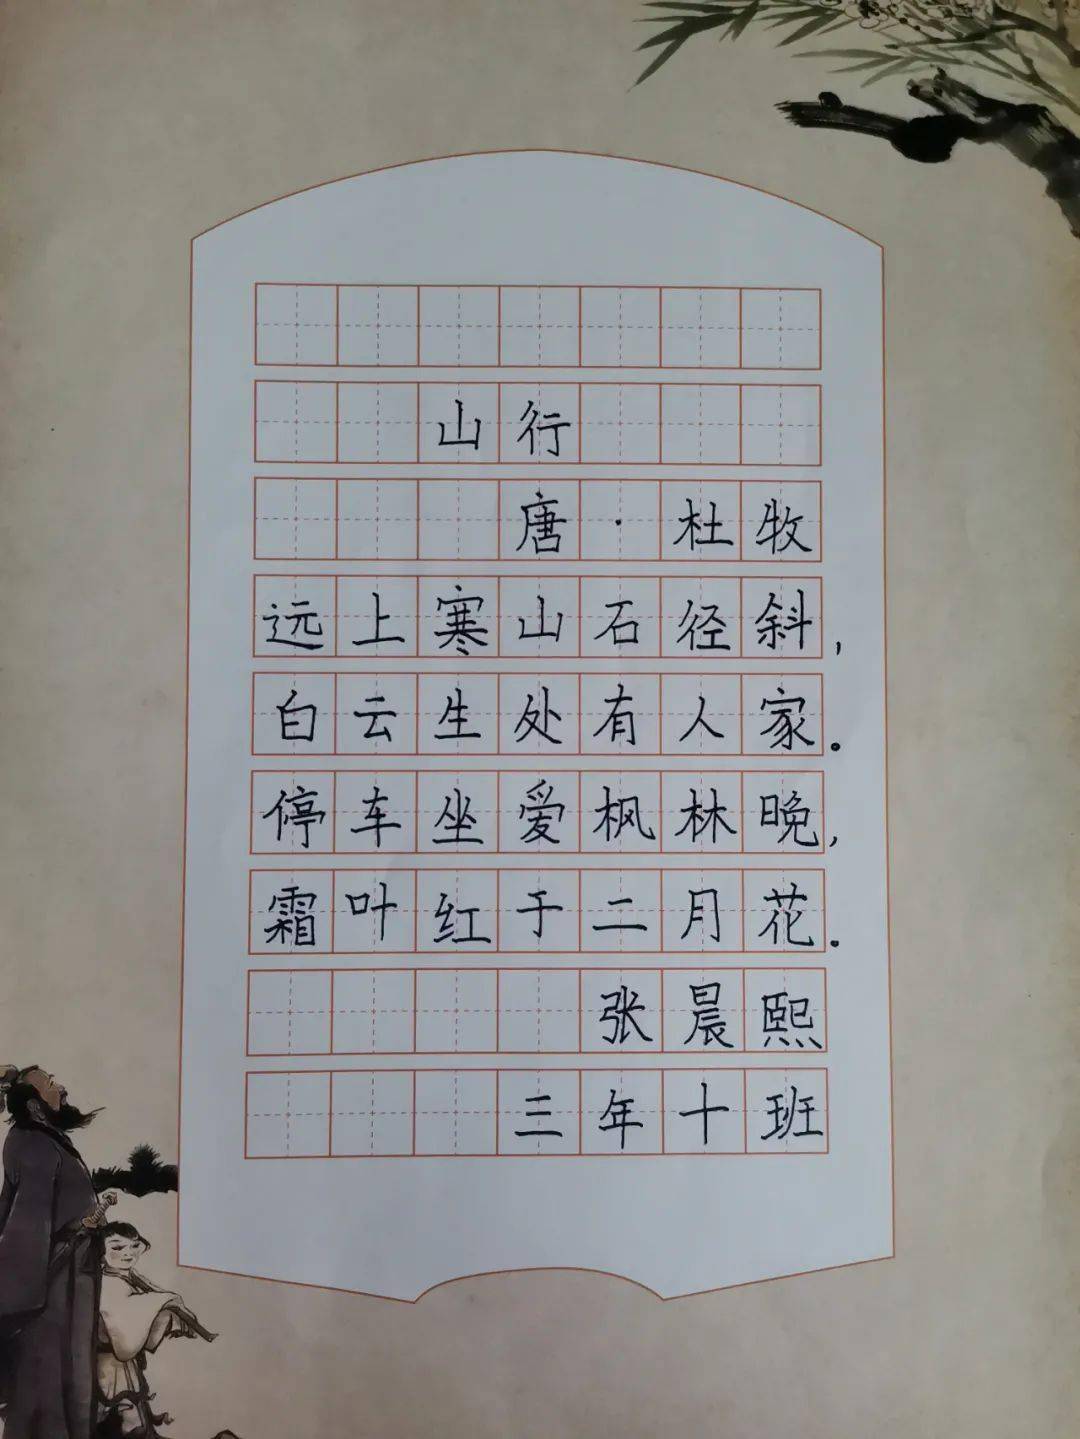 山行
唐·杜牧
远上寒山石径斜，
白云生处有人家。
停车坐爱枫林晚，
霜叶红于二月花。
张晨熙
三年十班